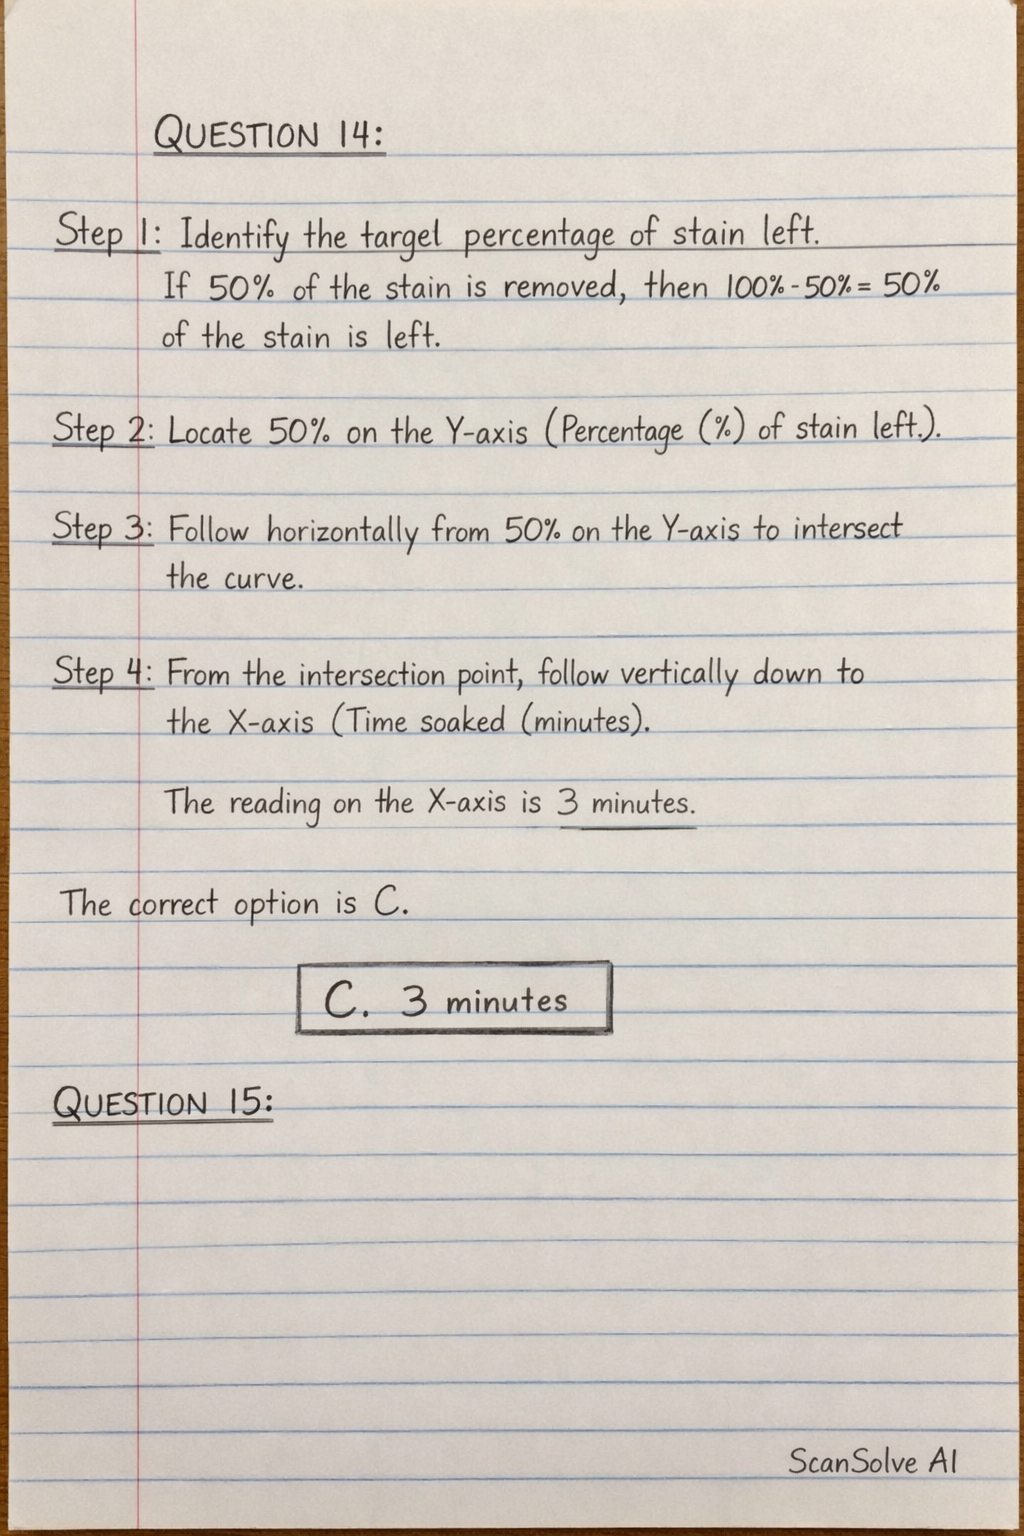 QUESTION 14:
Step 1: Identify the target percentage of stain left.
If 50% of the stain is removed, then 100%-50%= 50%
of the stain is left.
Step 2: Locate 50% on the Y-axis (Percentage (%) of stain left.).
Step 3: Follow horizontally from 50% on the Y-axis to intersect
the curve.
Step 4: From the intersection point, follow vertically down to
the X-axis (Time soaked (minutes).
The reading on the X-axis is 3 minutes.
The correct option is C.
C. 3 minutes
QUESTION 15:
ScanSolve AI